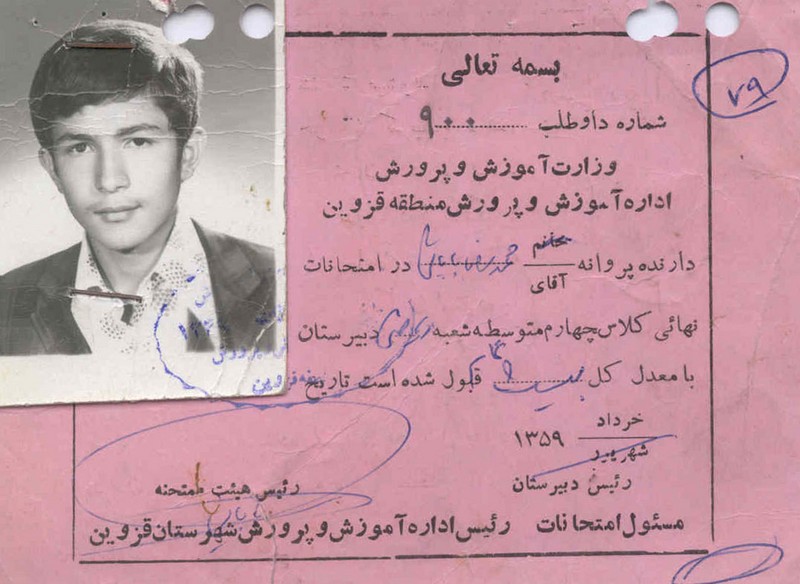 بسمه تعالی
۷۹
شماره داوطلب ۹۰۰
وزارت آموزش و پرورش
اداره آموزش و پرورش منطقه قزوین
دارنده پروانه خانم آقای محمدرضا در امتحانات
نهائی کلاس چهارم متوسطه شعبه ریاضی دبیرستان
با معدل کل بیست قبول شده است تاریخ
خرداد
شهریور ۱۳۵۹
رئیس هیئت ممتحنه رئیس دبیرستان
مسئول امتحانات رئیس اداره آموزش و پرورش شهرستان قزوین